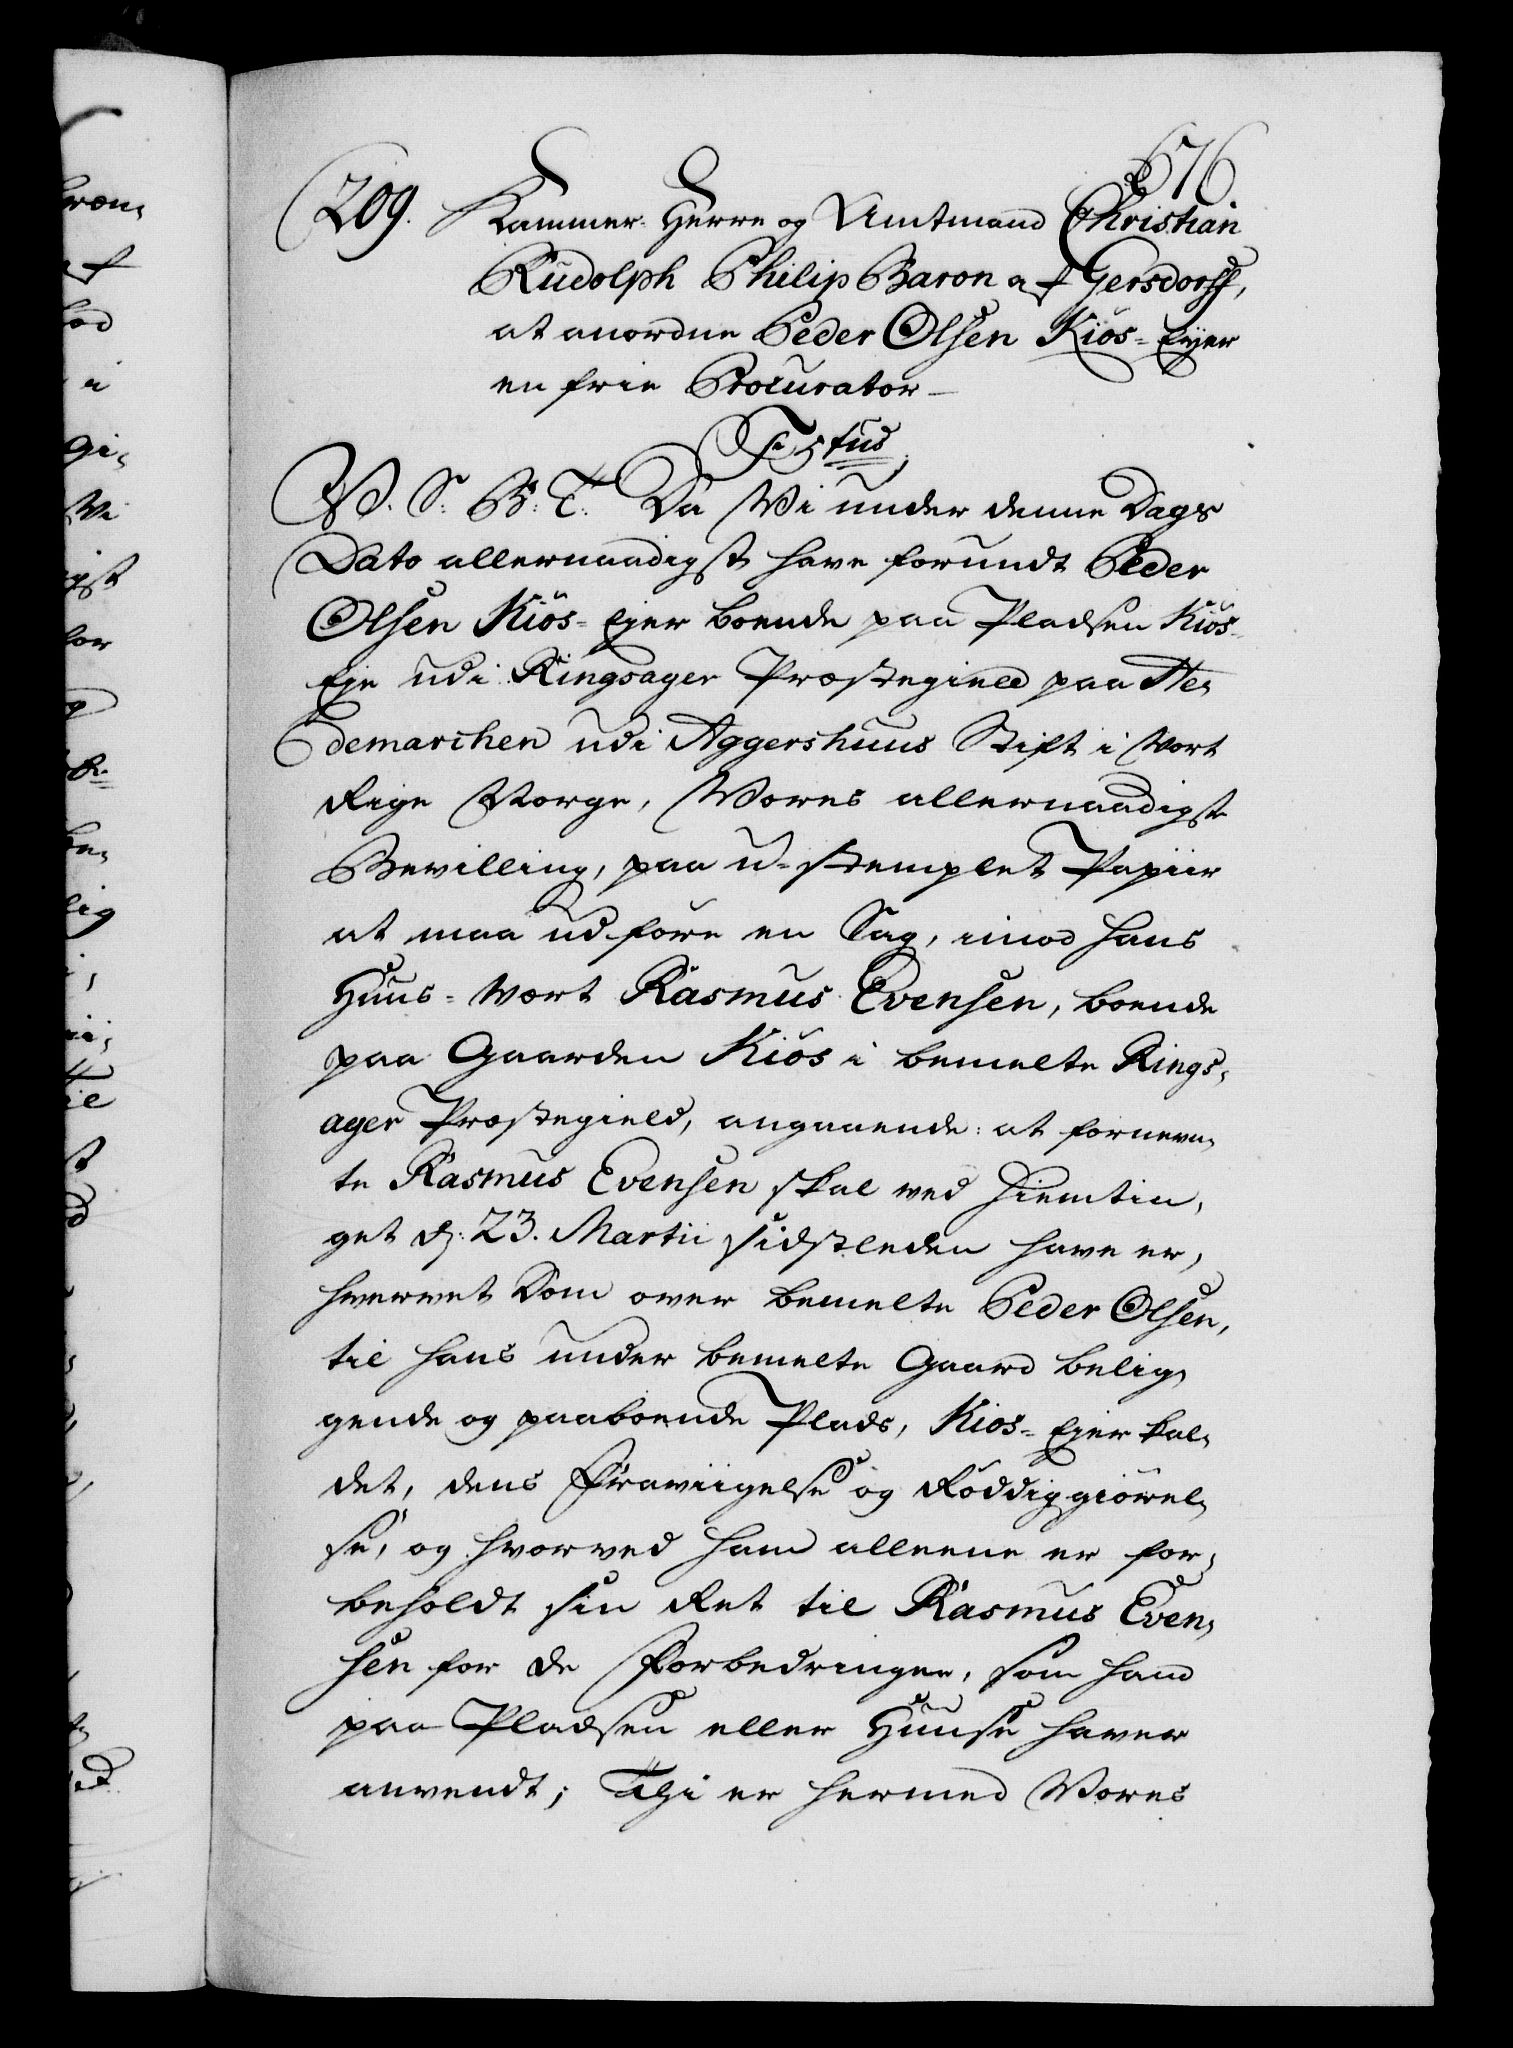 676
209. Kammer-Herre og Amtmand Christian
Rudolph Philip Baron af Gersdorff,
at anordne Peder Olsen Kiös-Eyer
en frie Procurator
V. S. G. T. Da Vi under denne Dags
Dato allernaadigst have forundt Peder
Olsen Kiös-Ejer boende paa Pladsen Kiös-
Eje udi Ringsager Præstegield paa He-
demarchen udi Aggershuus Stift i Vort
Rige Norge, Vores allernaadigste
Bevilling, paa u-stemplet Papiir
at maa udföre en Sag, imod hans
Huus-Vært Rasmus Evensen, boende
paa Gaarden Kiös i bemelte Rings-
ager Præstegield, angaaende: at fornevn-
te Rasmus Evensen skal ved Hiemtin-
get d. 23. Martii sidstleden have er-
hvervet Dom over bemelte Peder Olsen,
til hans under bemelte Gaard belig-
gende og paaboende Plads, Kios-Ejer kal-
det, dens Fraviigelse og Röddiggiörel-
se, og hvorved ham alleene er for-
beholdt sin Ret til Rasmus Even-
sen for de Forbedringer, som hand
paa Pladsen eller Huuse haver
anvendt; Thi er hermed Vores